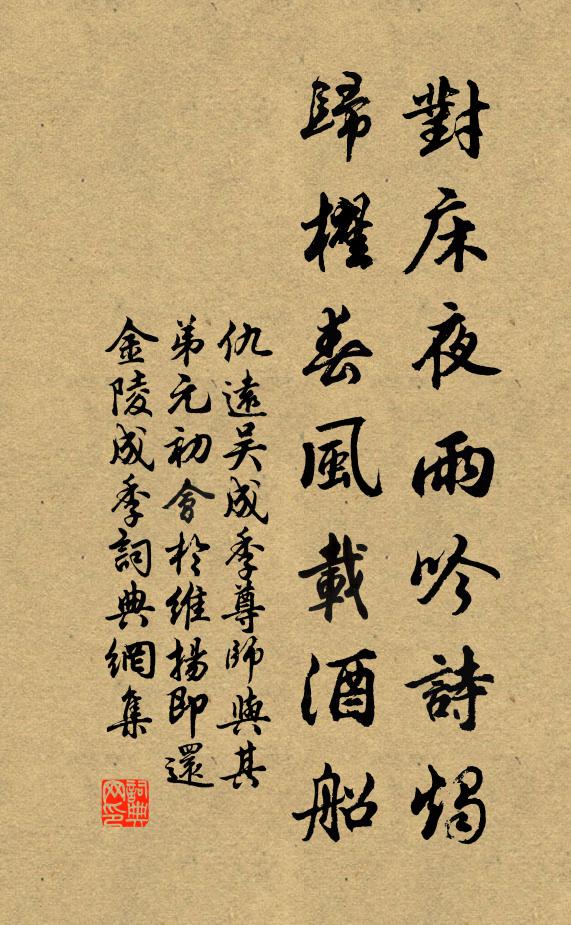 對床夜雨吟詩燭
歸櫂春風載酒船
仇遠吴成季尊師與其
弟元初會於維揚即還
金陵成季詞典網集
詞典網印